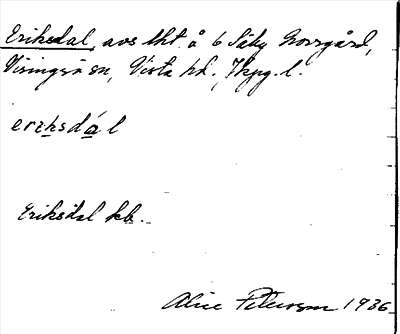 Eriksdal, avs. lht. å 6 Säby Norrgård,
Visingsö sn, Vista hd., Jkpg. l.
eriksdál
Eriksdal kb.
Alice Petersson 1936